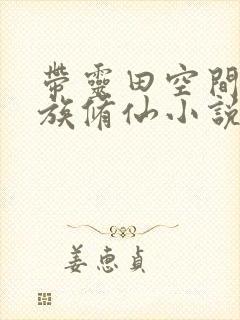 帶靈田空間
族脩仙小說
姜惠貞